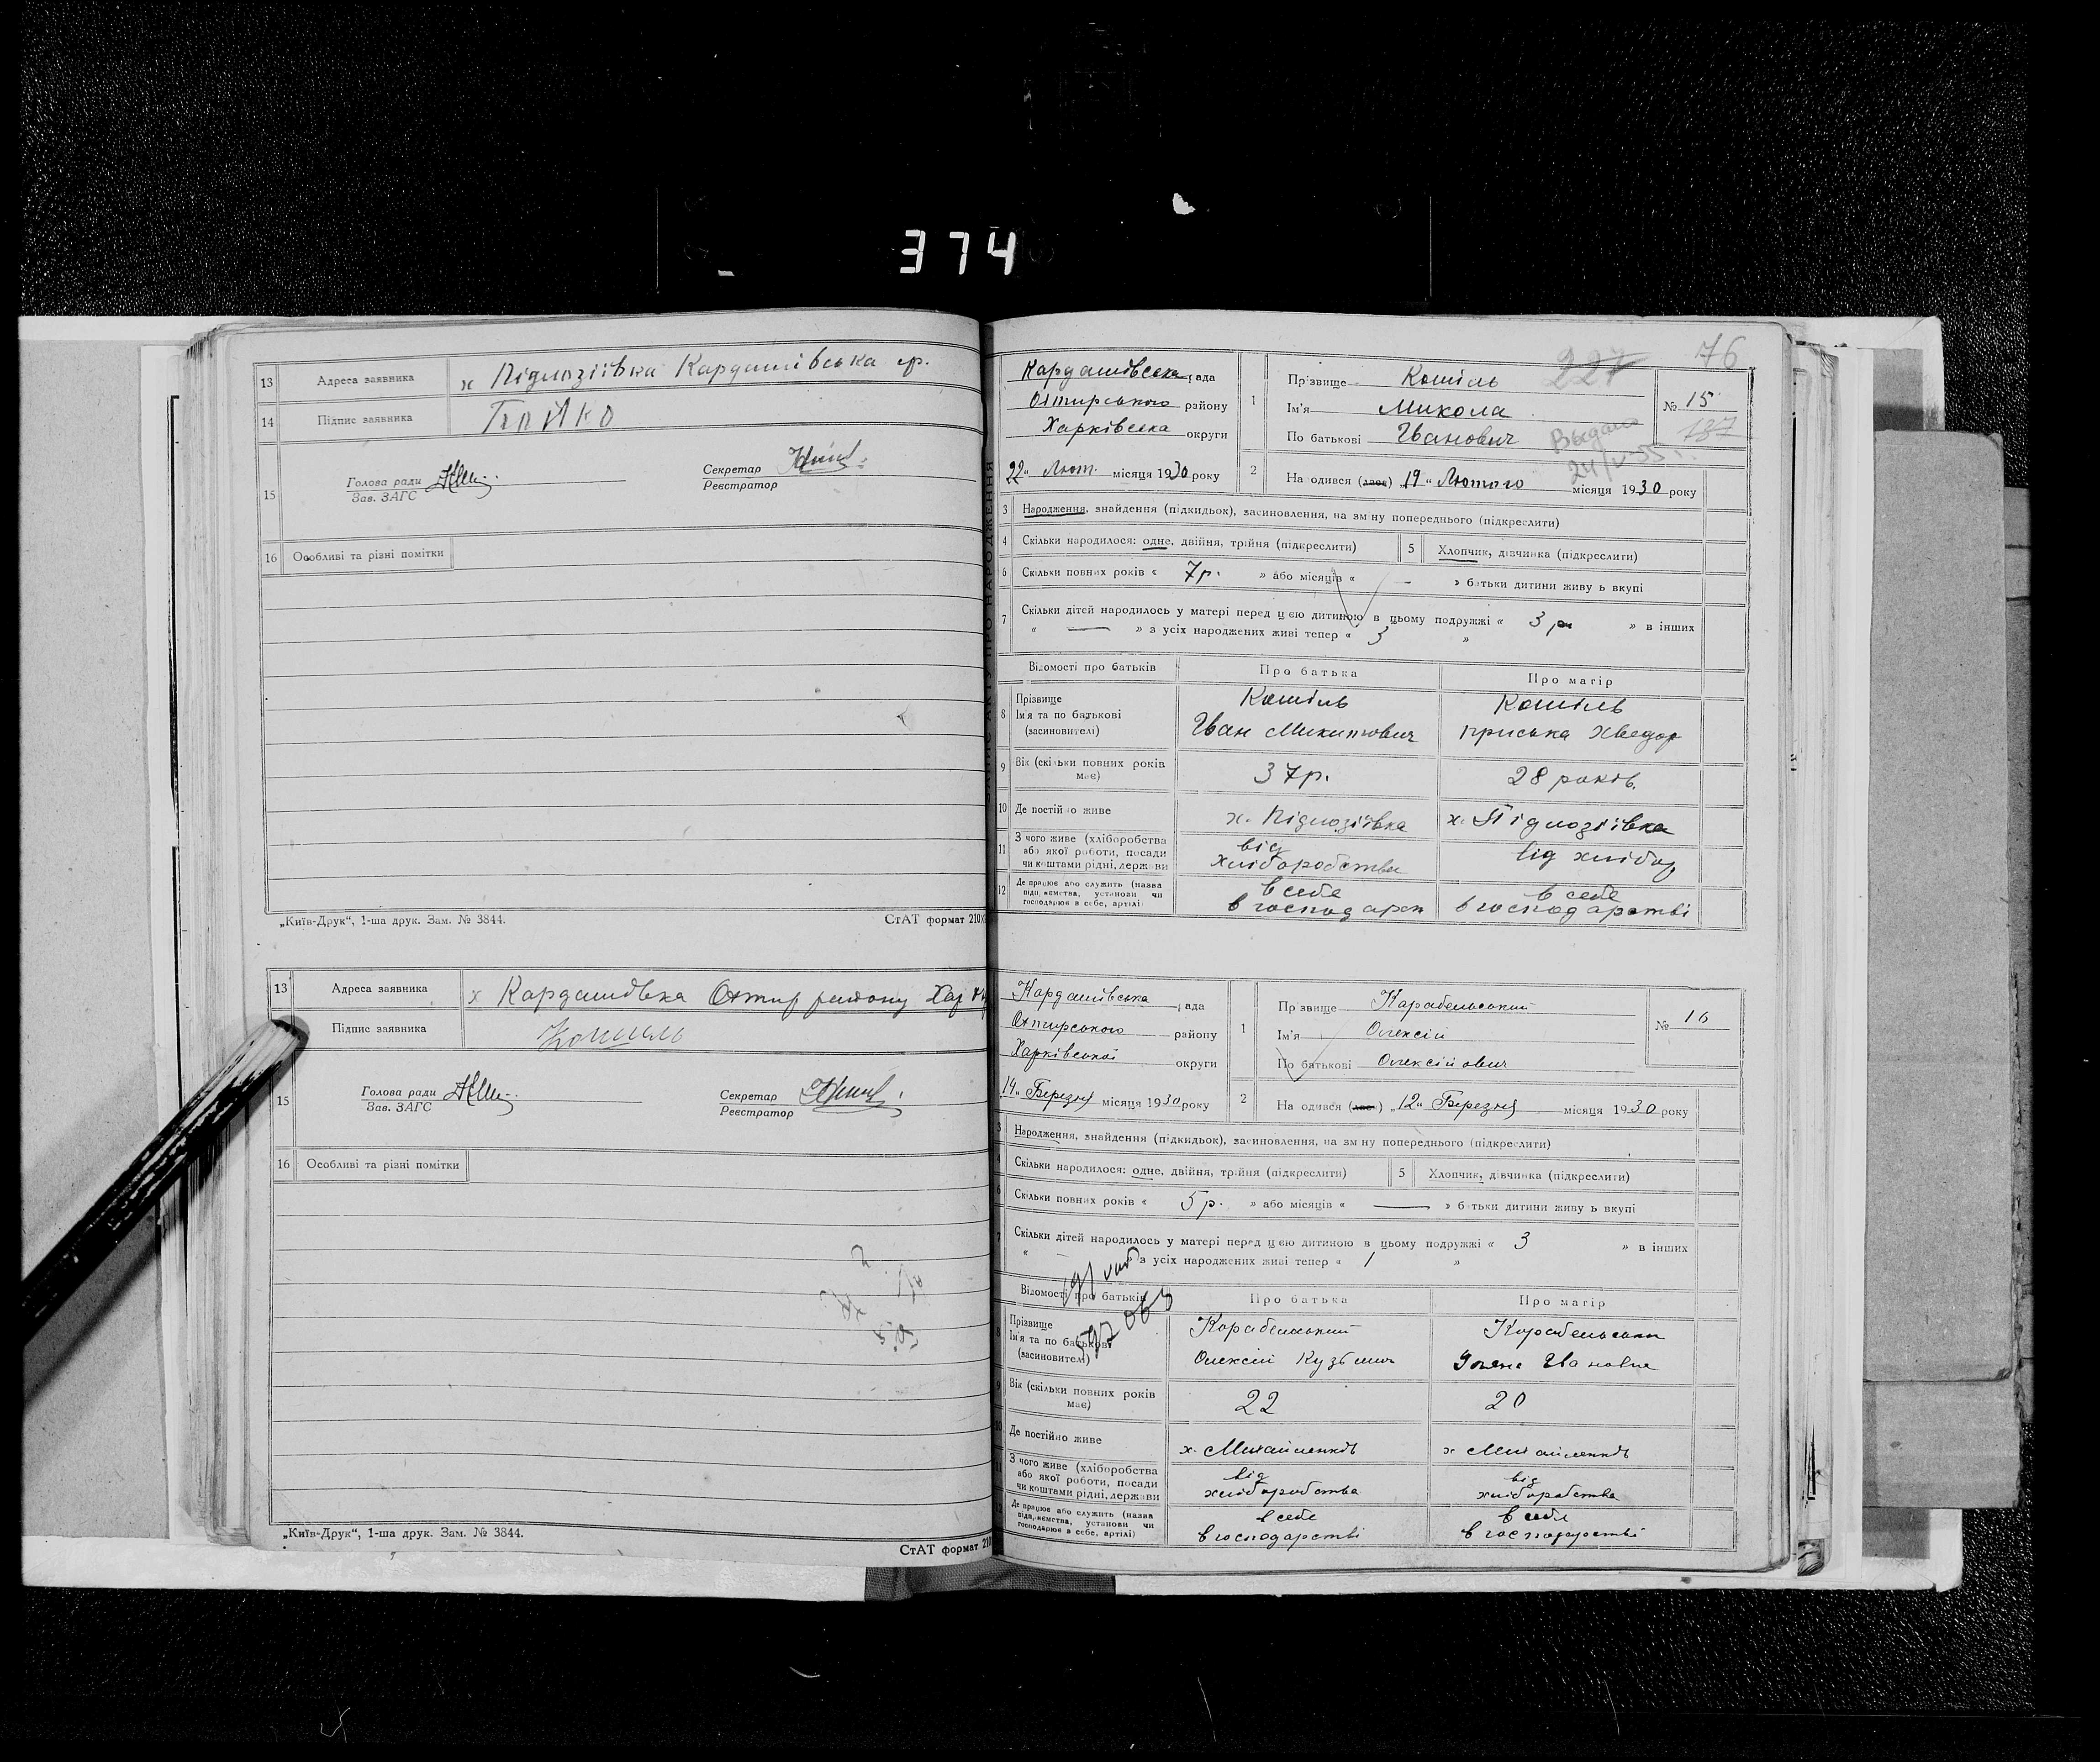 374
13 Адреса заявника х Підлозіївка Кардашівська ср.
14 Підпис заявника
15 Голова ради Секретар
Зав. ЗАГС Реєстратор
16 Особливі та різні помітки
„Київ-Друк“, 1-ша друк. Зам. № 3844. СтАТ формат 210
13 Адреса заявника х Кардашівка Охтир району Хар
Підпис заявника Кошиль
15 Голова ради Секретар
Зав. ЗАГС Реєстратор
16 Особливі та різні помітки
„Київ-Друк“, 1-ша друк. Зам. № 3844.
СтАТ формат 210
227 76
Кардашівська рада
Охтирського району
Харківська округи
22 „ Лют. місяця 1930 року
1 Прізвище Кошіль
Ім'я Микола
По батькові Іванович
№ 15
137
Выдано
24/V-55
2 Народився (лась) „19“ Лютого місяця 1930 року
3 Народження, знайдення (підкидьок), засиновлення, на зміну попереднього (підкреслити)
4 Скільки народилося: одне, двійня, трійня (підкреслити) 5 Хлопчик, дівчинка (підкреслити)
6 Скільки повних років « 7р. » або місяців « – » батьки дитини живуть вкупі
7 Скільки дітей народилось у матері перед цією дитиною в цьому подружжі « 3 » в інших
« — » з усіх народжених живі тепер « 3 »
Відомості про батьків Про батька Про матір
8 Прізвище Кошіль Кошіль
Ім'я та по батькові Іван Микитович Приська Хведор
(засиновителі)
9 Вік (скільки повних років має) 37р. 28 років.
10 Де постійно живе х. Підлозіївка х. Підлозіївка
11 З чого живе (хліборобства від
або якої роботи, посади хліборобства від хлібор
чи коштами рідні, держави
12 Де працює або служить (назва в себе в себе
підприємства, установи чи в господарст в господарстві
господарює в себе, артілі)
Кардашівська рада
Охтирського району
Харківської округи
14 „ Березня місяця 1930 року
1 Прізвище Карабельський
Ім'я Олексій
По батькові Олексійович
№ 16
2 Народився (лась) „12“ Березня місяця 1930 року
3 Народження, знайдення (підкидьок), засиновлення, на зміну попереднього (підкреслити)
4 Скільки народилося: одне, двійня, трійня (підкреслити) 5 Хлопчик, дівчинка (підкреслити)
6 Скільки повних років « 5р. » або місяців « — » батьки дитини живуть вкупі
7 Скільки дітей народилось у матері перед цією дитиною в цьому подружжі « 3 » в інших
« – » з усіх народжених живі тепер « 1 »
Відомості про батьків Про батька Про матір
8 Прізвище Карабельський Карабельська
Ім'я та по батькові Олексій Кузьмич Уляна Івановна
(засиновителі)
9 Вік (скільки повних років має) 22 20
10 Де постійно живе х. Михайленків х. Михайленків
11 З чого живе (хліборобства від від
або якої роботи, посади хліборобства хліборобства
чи коштами рідні, держави
12 Де працює або служить (назва в себе в себе
підприємства, установи чи в господарстві в господарстві
господарює в себе, артілі)